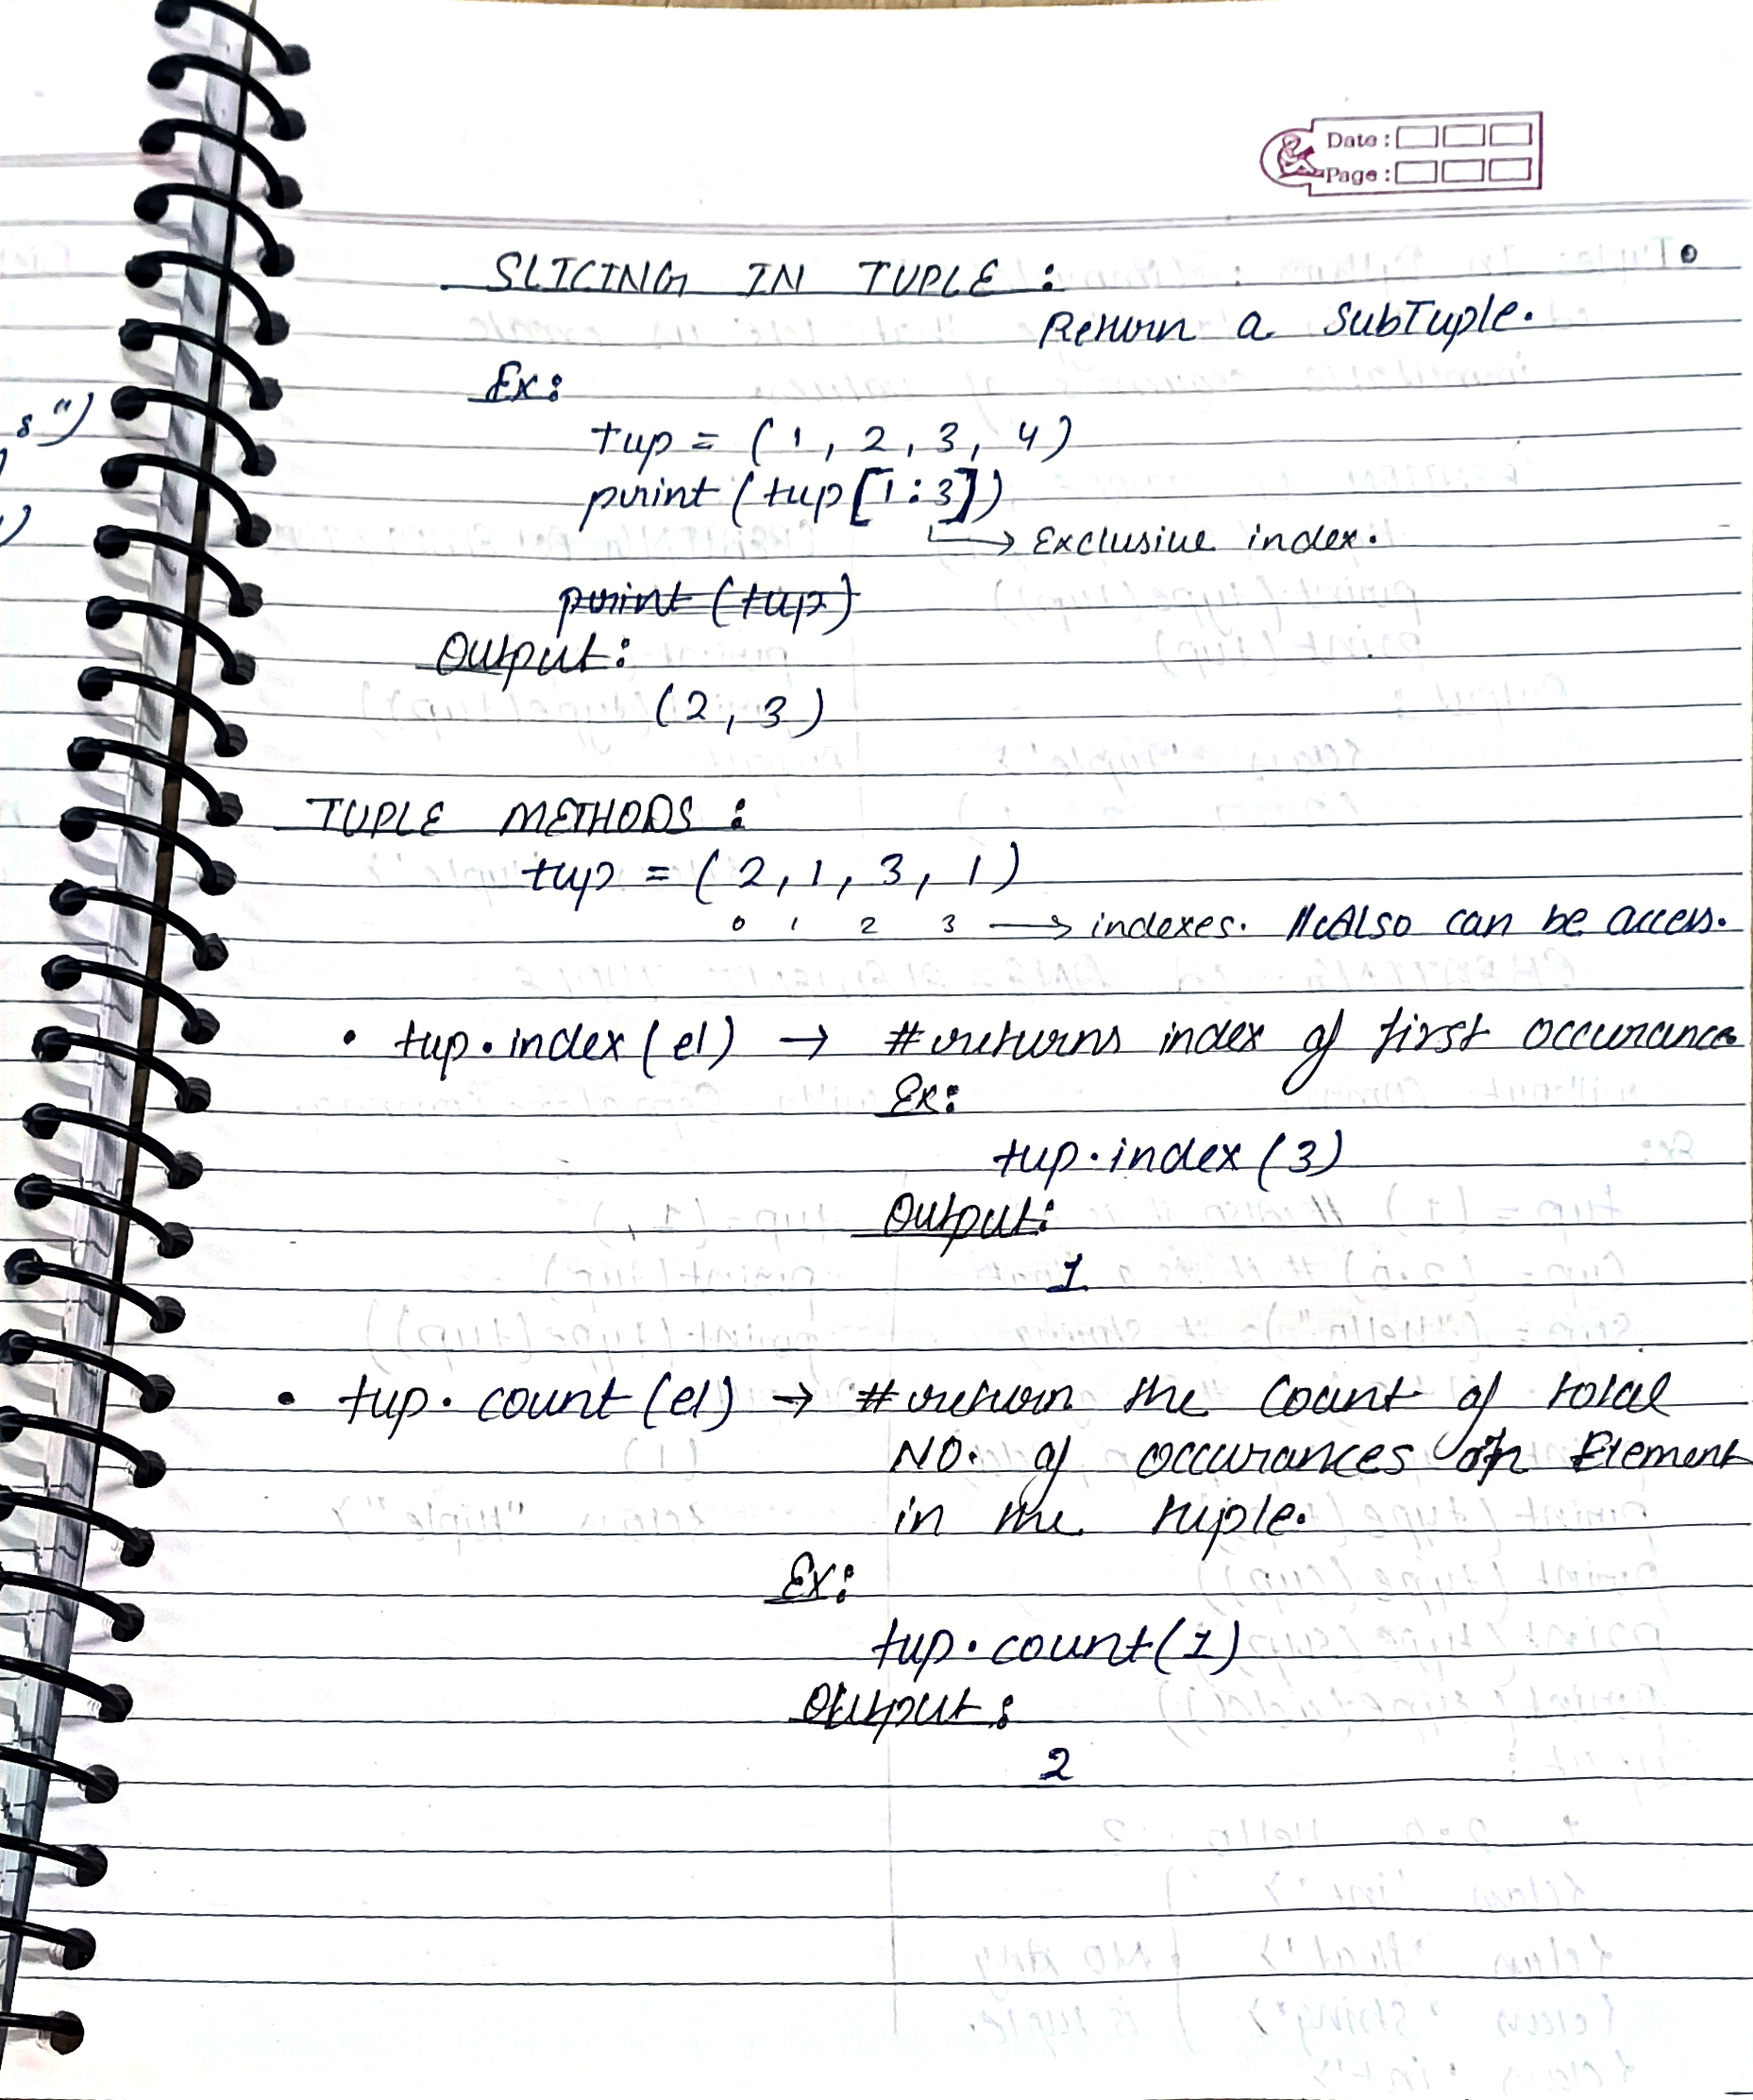 Date :
Page :
SLICING IN TUPLE :
Return a SubTuple.
Ex:
s")
)
Tup = ( 1 , 2 , 3 , 4 )
print ( tup [ 1 : 3 ] )
→ Exclusive index.
print (tup)
Output :
( 2 , 3 )
TUPLE METHODS :
tup = ( 2 , 1 , 3 , 1 )
0 1 2 3 → indexes. // Also can be access.
• tup . index ( el ) → # returns index of first occurance
Ex:
tup . index ( 3 )
Output:
1
• tup . count ( el ) → # return the count of total
NO. of occurances of Element
in the tuple.
Ex:
tup . count ( 1 )
Output :
2